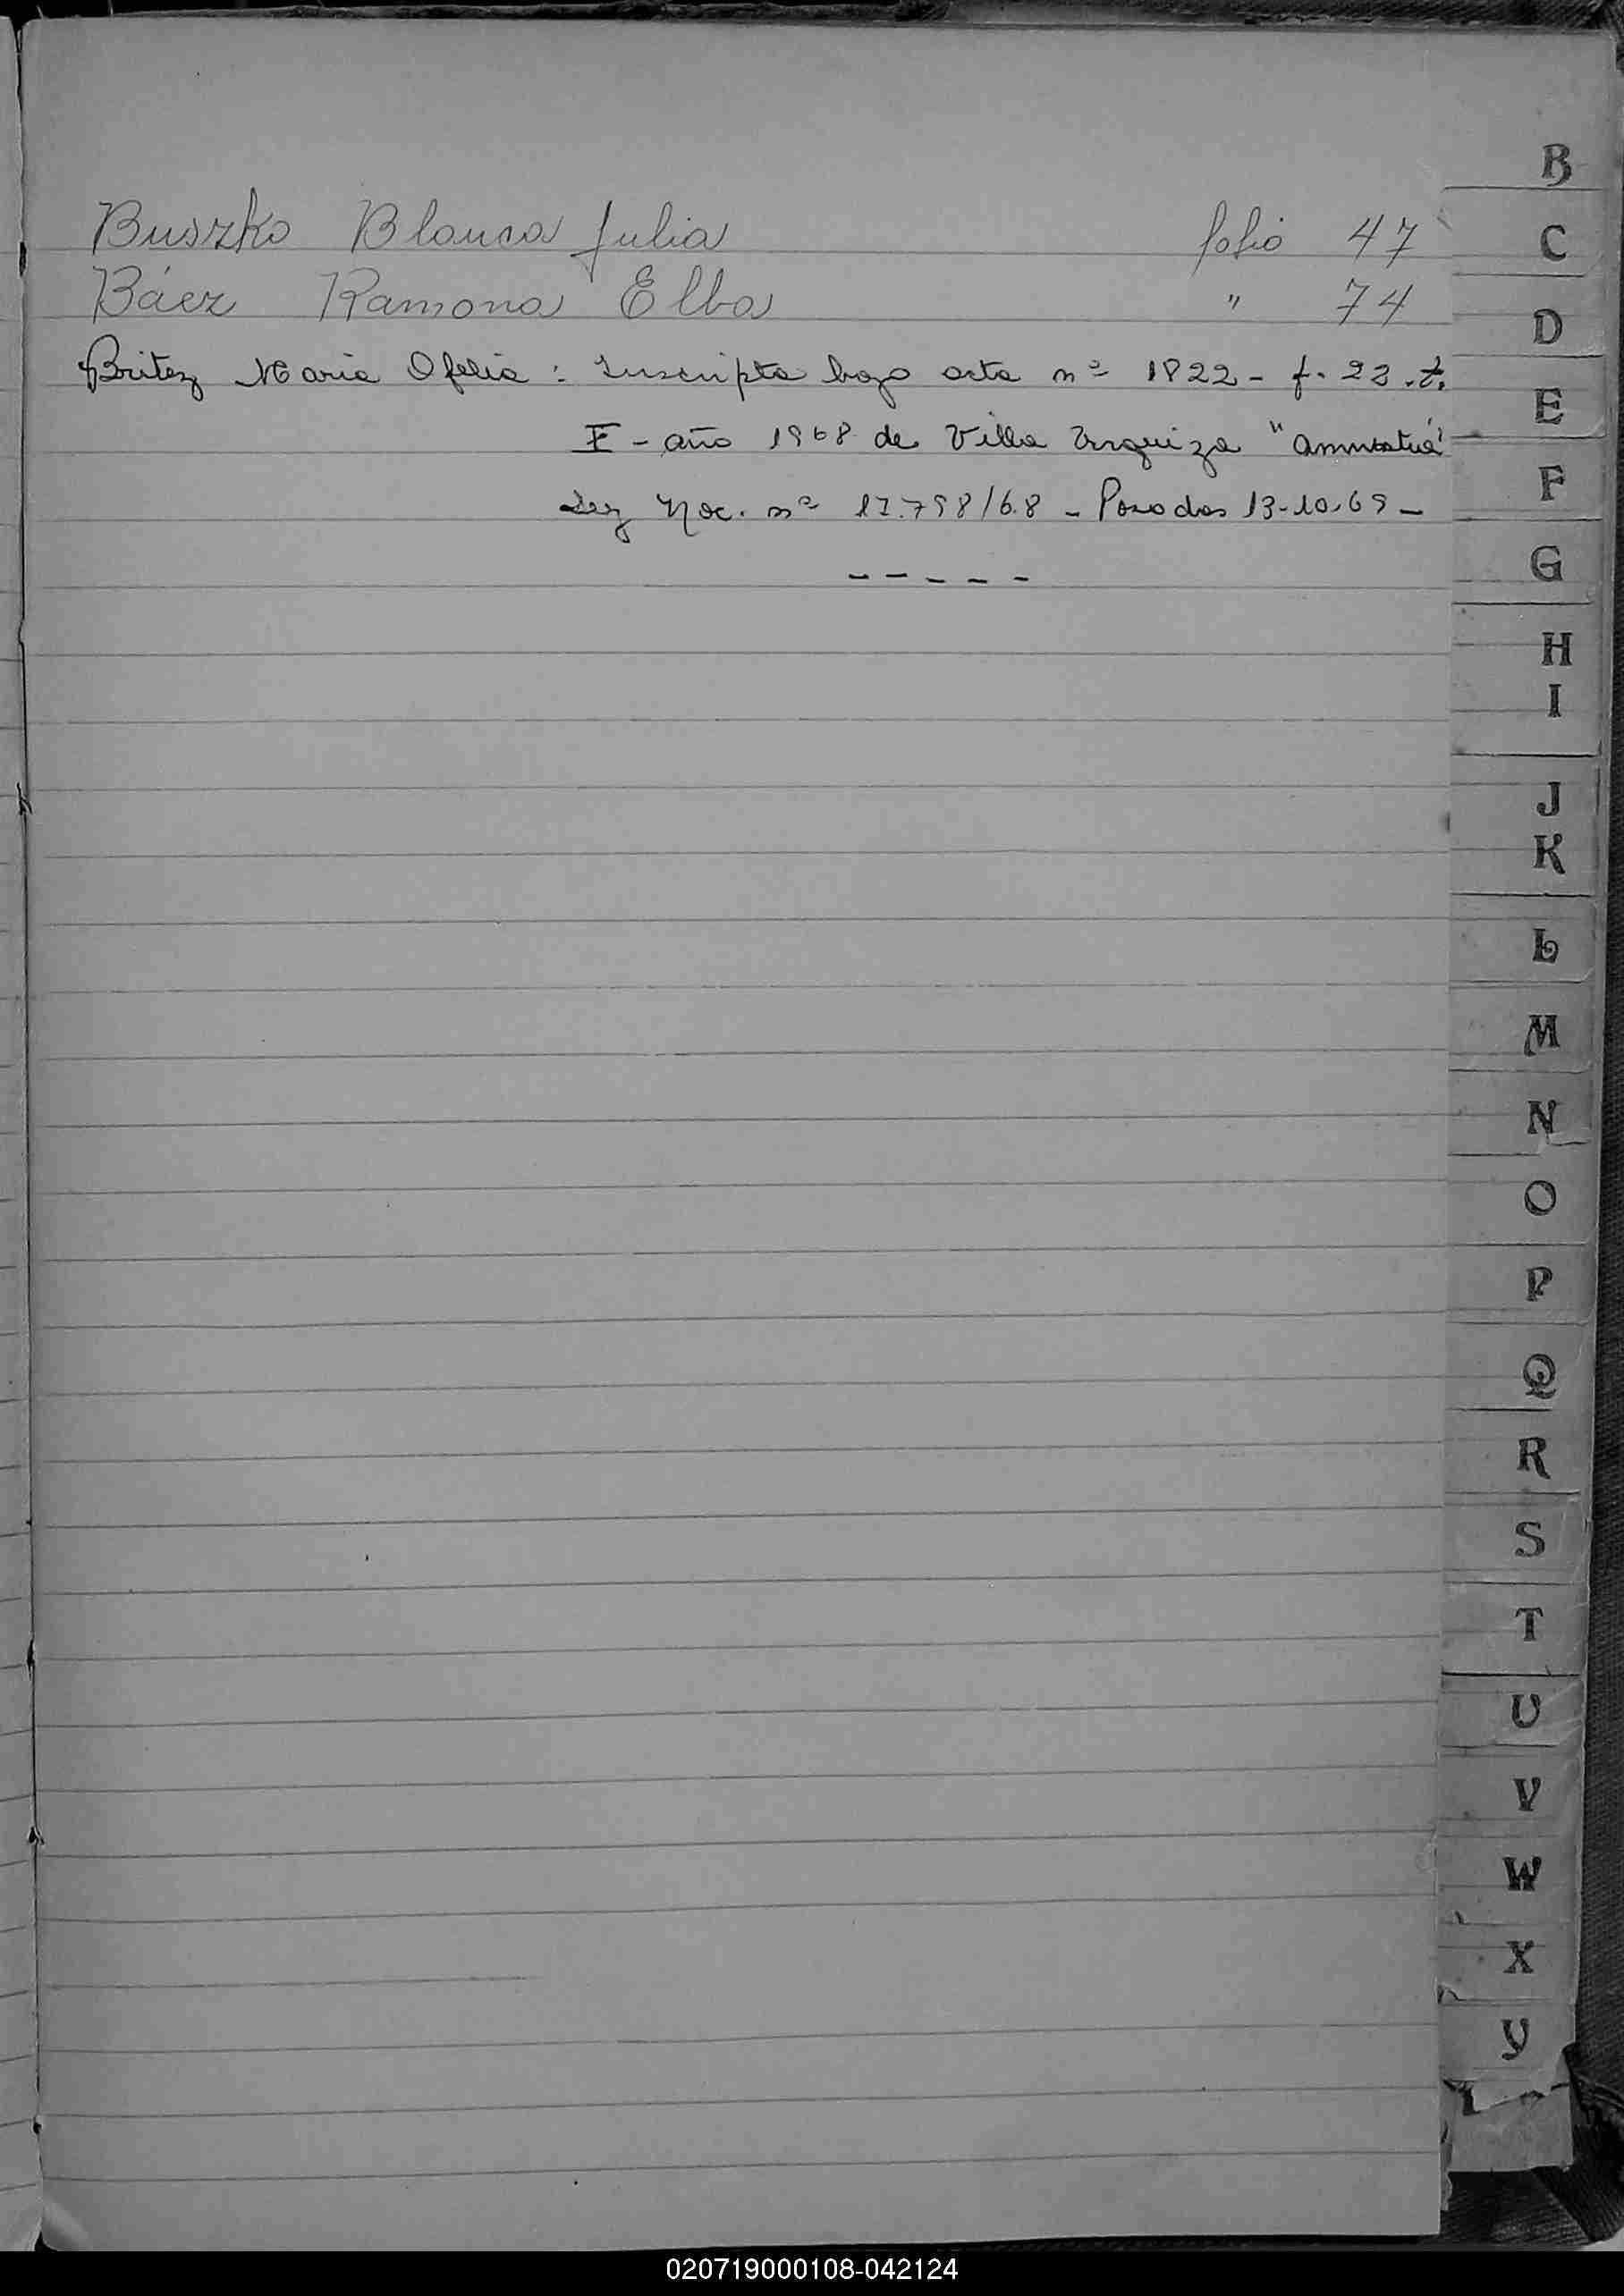 Buszko Blanca Julia folio 47
Báez Ramona Elba " 74
Britez Maria Ofelia : Inscripta bajo acta nº 1822 - f. 23 . t.
I - año 1968 de Villa Urquiza "Amnistia"
Ley Nac. nº 17.798/68 - Posadas 13-10-69 -
B
C
D
E
F
G
H
I
J
K
L
M
N
O
P
Q
R
S
T
U
V
W
X
Y
020719000108-042124